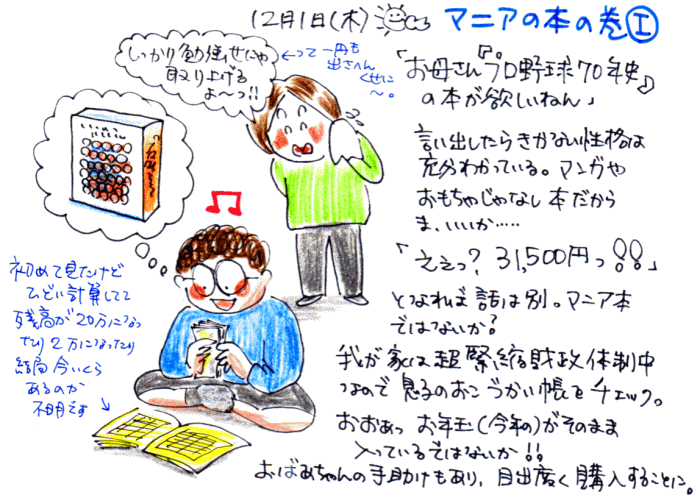 12月1日(木)
マニアの本の巻①
しっかり勉強せにゃ
取り上げる
よ〜っ!!
←って一円も
出さへん
くせに
〜。
「お母さん『プロ野球70年史』
の本が欲しいねん」
言い出したらきかない性格は
充分わかっている。マンガや
おもちゃじゃなし本だから
ま、いいか……
「ええっ? 31,500円っ!!」
となれば話は別。マニア本
ではないか?
我が家は超緊縮財政体制中
なので息子のおこづかい帳をチェック。
おおぁっ お年玉(今年の)がそのまま
入っているではないか!!
おばあちゃんの手助けもあり、目出度く購入することに。
初めて見たけど
ひどい計算してて
残高が20万になっ
たり2万になったり
結局今いくら
あるのか
不明です